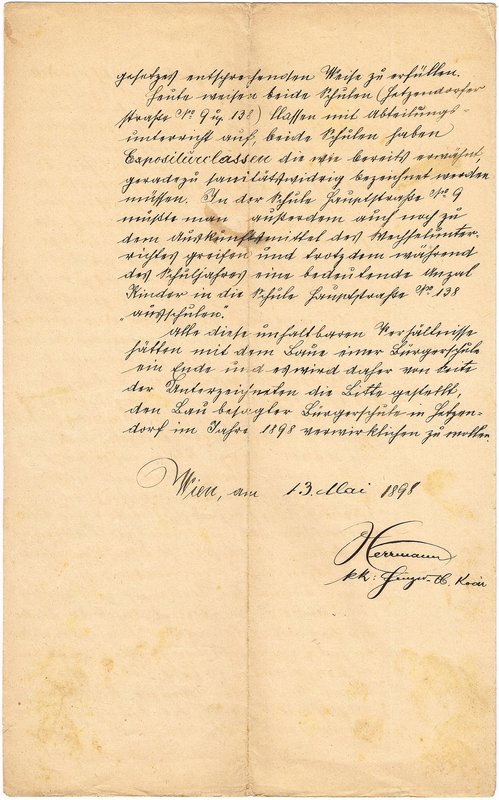 gesetzes entsprechenden Weise zu erfüllen.
Heute weisen beide Schulen (Hetzendorfer
straße No 9 u. 138) Klassen mit Abteilungs-
unterricht auf, beide Schulen haben
Expositurclassen die wie bereits erwähnt,
geradezu sanitätswidrig bezeichnet werden
müssen. In der Schule Hauptstraße No 9
mußte man außerdem auch noch zu
dem Auskunftsmittel des Wechselunter-
richtes greifen und trotzdem während
des Schuljahres eine bedeutende Anzal
Kinder in die Schule Hauptstraße No 138
"ausschulen".
Alle diese unhaltbaren Verhältnisse
hätten mit dem Baue einer Bürgerschule
ein Ende und es wird daher von Seite
der Unterzeichneten die Bitte gestellt,
den Bau besagter Bürgerschule in Hetzen-
dorf im Jahre 1898 verwirklichen zu wollen.
Wien, am 13. Mai 1898
Herrmann
k.k.